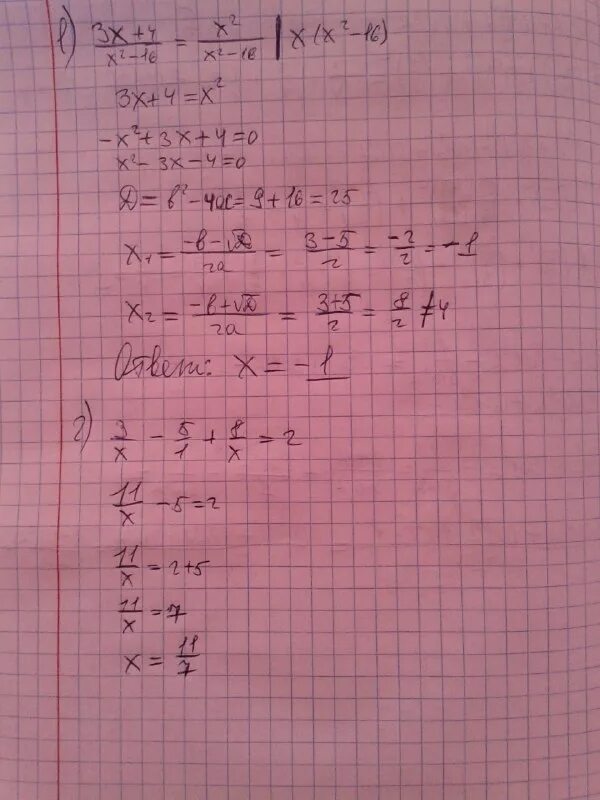 в) (3x+4)/(x²-16) = x²/(x²-16) | × (x²-16)
3x+4=x²
-x²+3x+4=0
x²-3x-4=0
D=b²-4ac=9+16=25
x₁=(-b-√D)/2a = (3-5)/2 = -2/2 = -1
x₂=(-b+√D)/2a = (3+5)/2 = 8/2 ≠4
Ответ: x=-1
г) 3/x - 5/1 + 8/x = 2
11/x - 5=2
11/x = 2+5
11/x = 7
x = 11/7